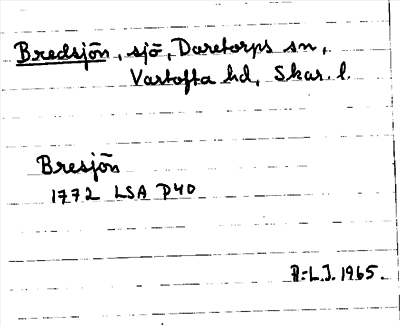 Bredsjön, sjö, Daretorps sn,
Vartofta hd, Skar. l.
Bresjön
1772 LSA P40
R:L.J. 1965.